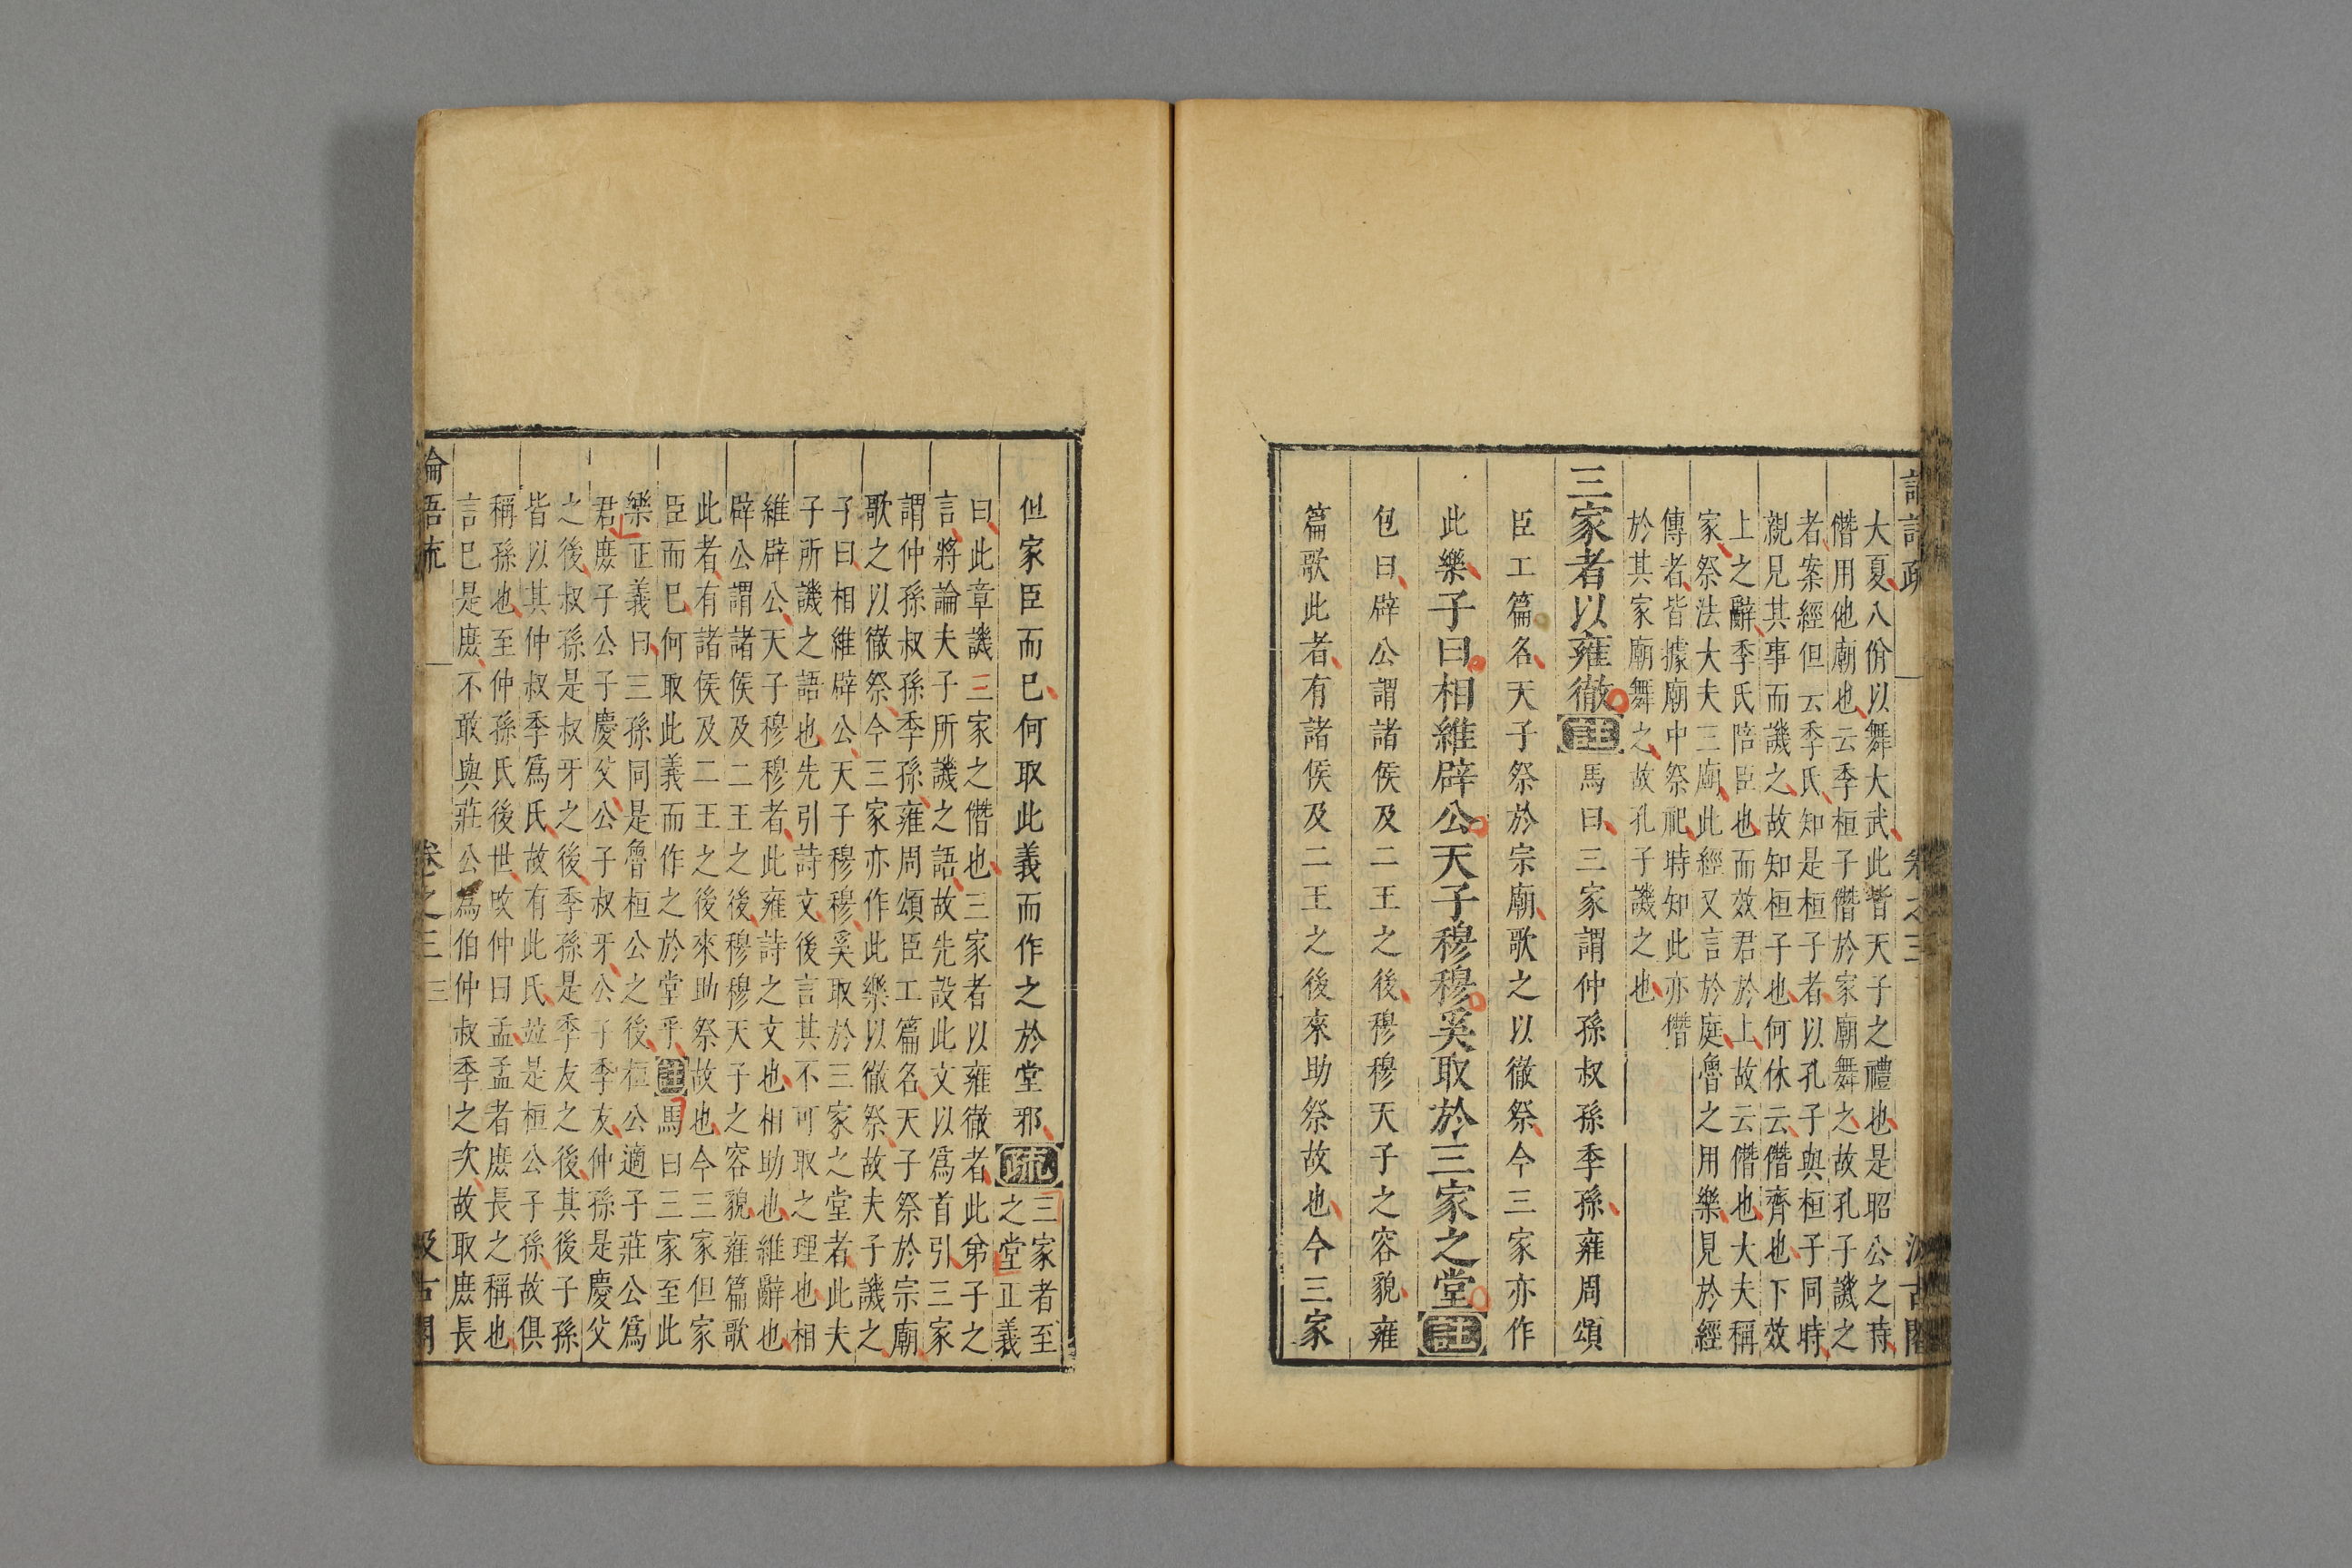 大夏八佾以舞大武此皆天子之禮也是昭公之時
僭用他廟也云季桓子僭於家廟舞之故孔子譏之
者案經但云季氏知是桓子者以孔子與桓子同時
親見其事而譏之故知桓子也何休云僭齊也下效
上之辭季氏陪臣也而效君於上故云僭也大夫稱
家祭法大夫三廟此經又言於庭魯之用樂見於經
傳者皆據廟中祭祀時知此亦僭
於其家廟舞之故孔子譏之也
三家者以雍徹註馬曰三家謂仲孫叔孫季孫雍周頌
臣工篇名天子祭於宗廟歌之以徹祭今三家亦作
此樂子曰相維辟公天子穆穆奚取於三家之堂註
包曰辟公謂諸侯及二王之後穆穆天子之容貌雍
篇歌此者有諸侯及二王之後來助祭故也今三家
但家臣而已何取此義而作之於堂邪疏三家者至
之堂正義
曰此章譏三家之僭也三家者以雍徹者此弟子之
言將論夫子所譏之語故先設此文以爲首引三家
謂仲孫叔孫季孫雍周頌臣工篇名天子祭於宗廟
歌之以徹祭今三家亦作此樂以徹祭故夫子譏之
子曰相維辟公天子穆穆奚取於三家之堂者此夫
子所譏之語也先引詩文後言其不可取之理也相
維辟公天子穆穆者此雍詩之文也相助也維辭也
辟公謂諸侯及二王之後穆穆天子之容貌雍篇歌
此者有諸侯及二王之後來助祭故也今三家但家
臣而已何取此義而作之於堂乎註馬曰三家至此
樂正義曰三孫同是魯桓公之後桓公適子莊公爲
君庶子公子慶父公子叔牙公子季友仲孫是慶父
之後叔孫是叔牙之後季孫是季友之後其後子孫
皆以其仲叔季爲氏故有此氏並是桓公子孫故俱
稱孫也至仲孫氏後世改仲曰孟孟者庶長之稱也
言已是庶不敢與莊公爲伯仲叔季之次故取庶長
論語疏 卷之三 三 汲古閣